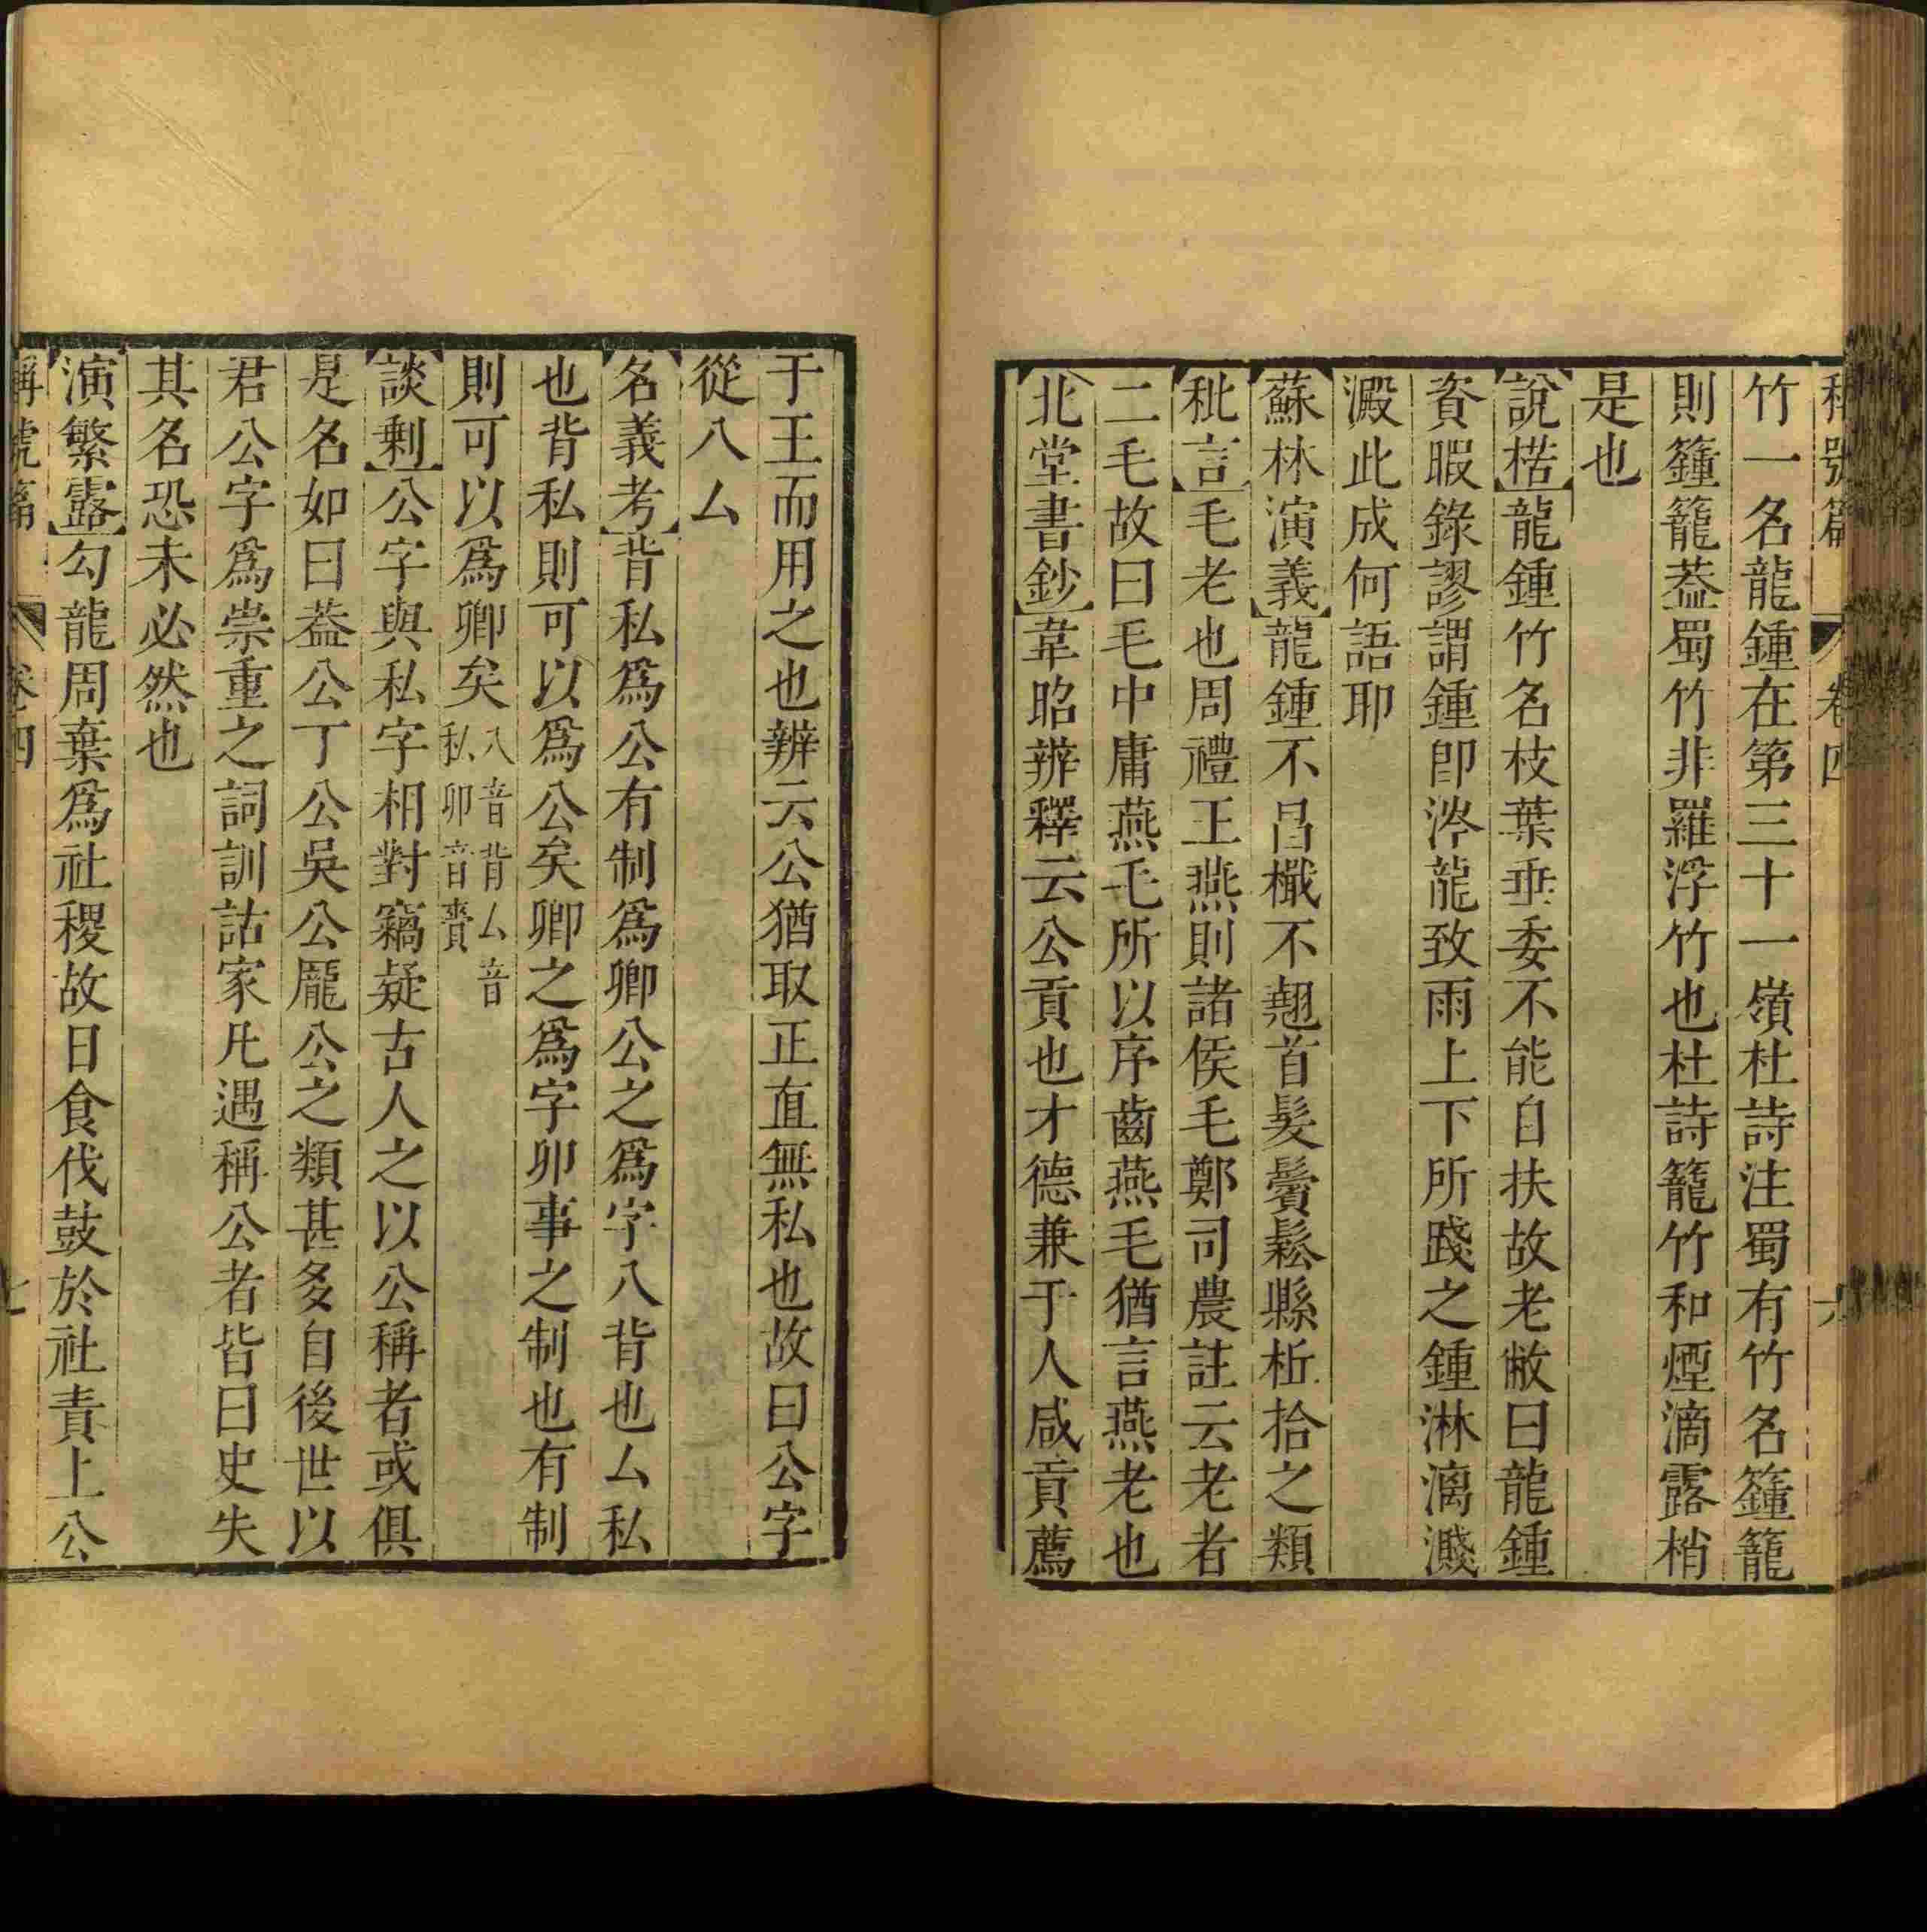 稱號篇 卷四 六
竹一名龍鍾在第三十一嶺杜詩注蜀有竹名籦籠
則籦籠葢蜀竹非羅浮竹也杜詩籠竹和煙滴露梢
是也
說楛龍鍾竹名枝葉垂委不能自扶故老敝曰龍鍾
資暇錄謬謂鍾卽涔龍致雨上下所踐之鍾淋漓濺
澱此成何語耶
蘇林演義龍鍾不昌檝不翹首髮鬢鬆縣析拾之類
秕言毛老也周禮王燕則諸侯毛鄭司農註云老者
二毛故曰毛中庸燕毛所以序齒燕毛猶言燕老也
北堂書鈔韋昭辨釋云公貢也才德兼于人咸貢薦
于王而用之也辨云公猶取正直無私也故曰公字
從八厶
名義考背私爲公有制爲卿公之爲字八背也厶私
也背私則可以爲公矣卿之爲字卯事之制也有制
則可以爲卿矣八音背厶音私卯音賷
談剩公字與私字相對竊疑古人之以公稱者或俱
是名如曰葢公丁公吳公龎公之類甚多自後世以
君公字爲崇重之詞訓詁家凡遇稱公者皆曰史失
其名恐未必然也
演繁露勾龍周棄爲社稷故日食伐鼓於社責上公
稱號篇 卷四 七